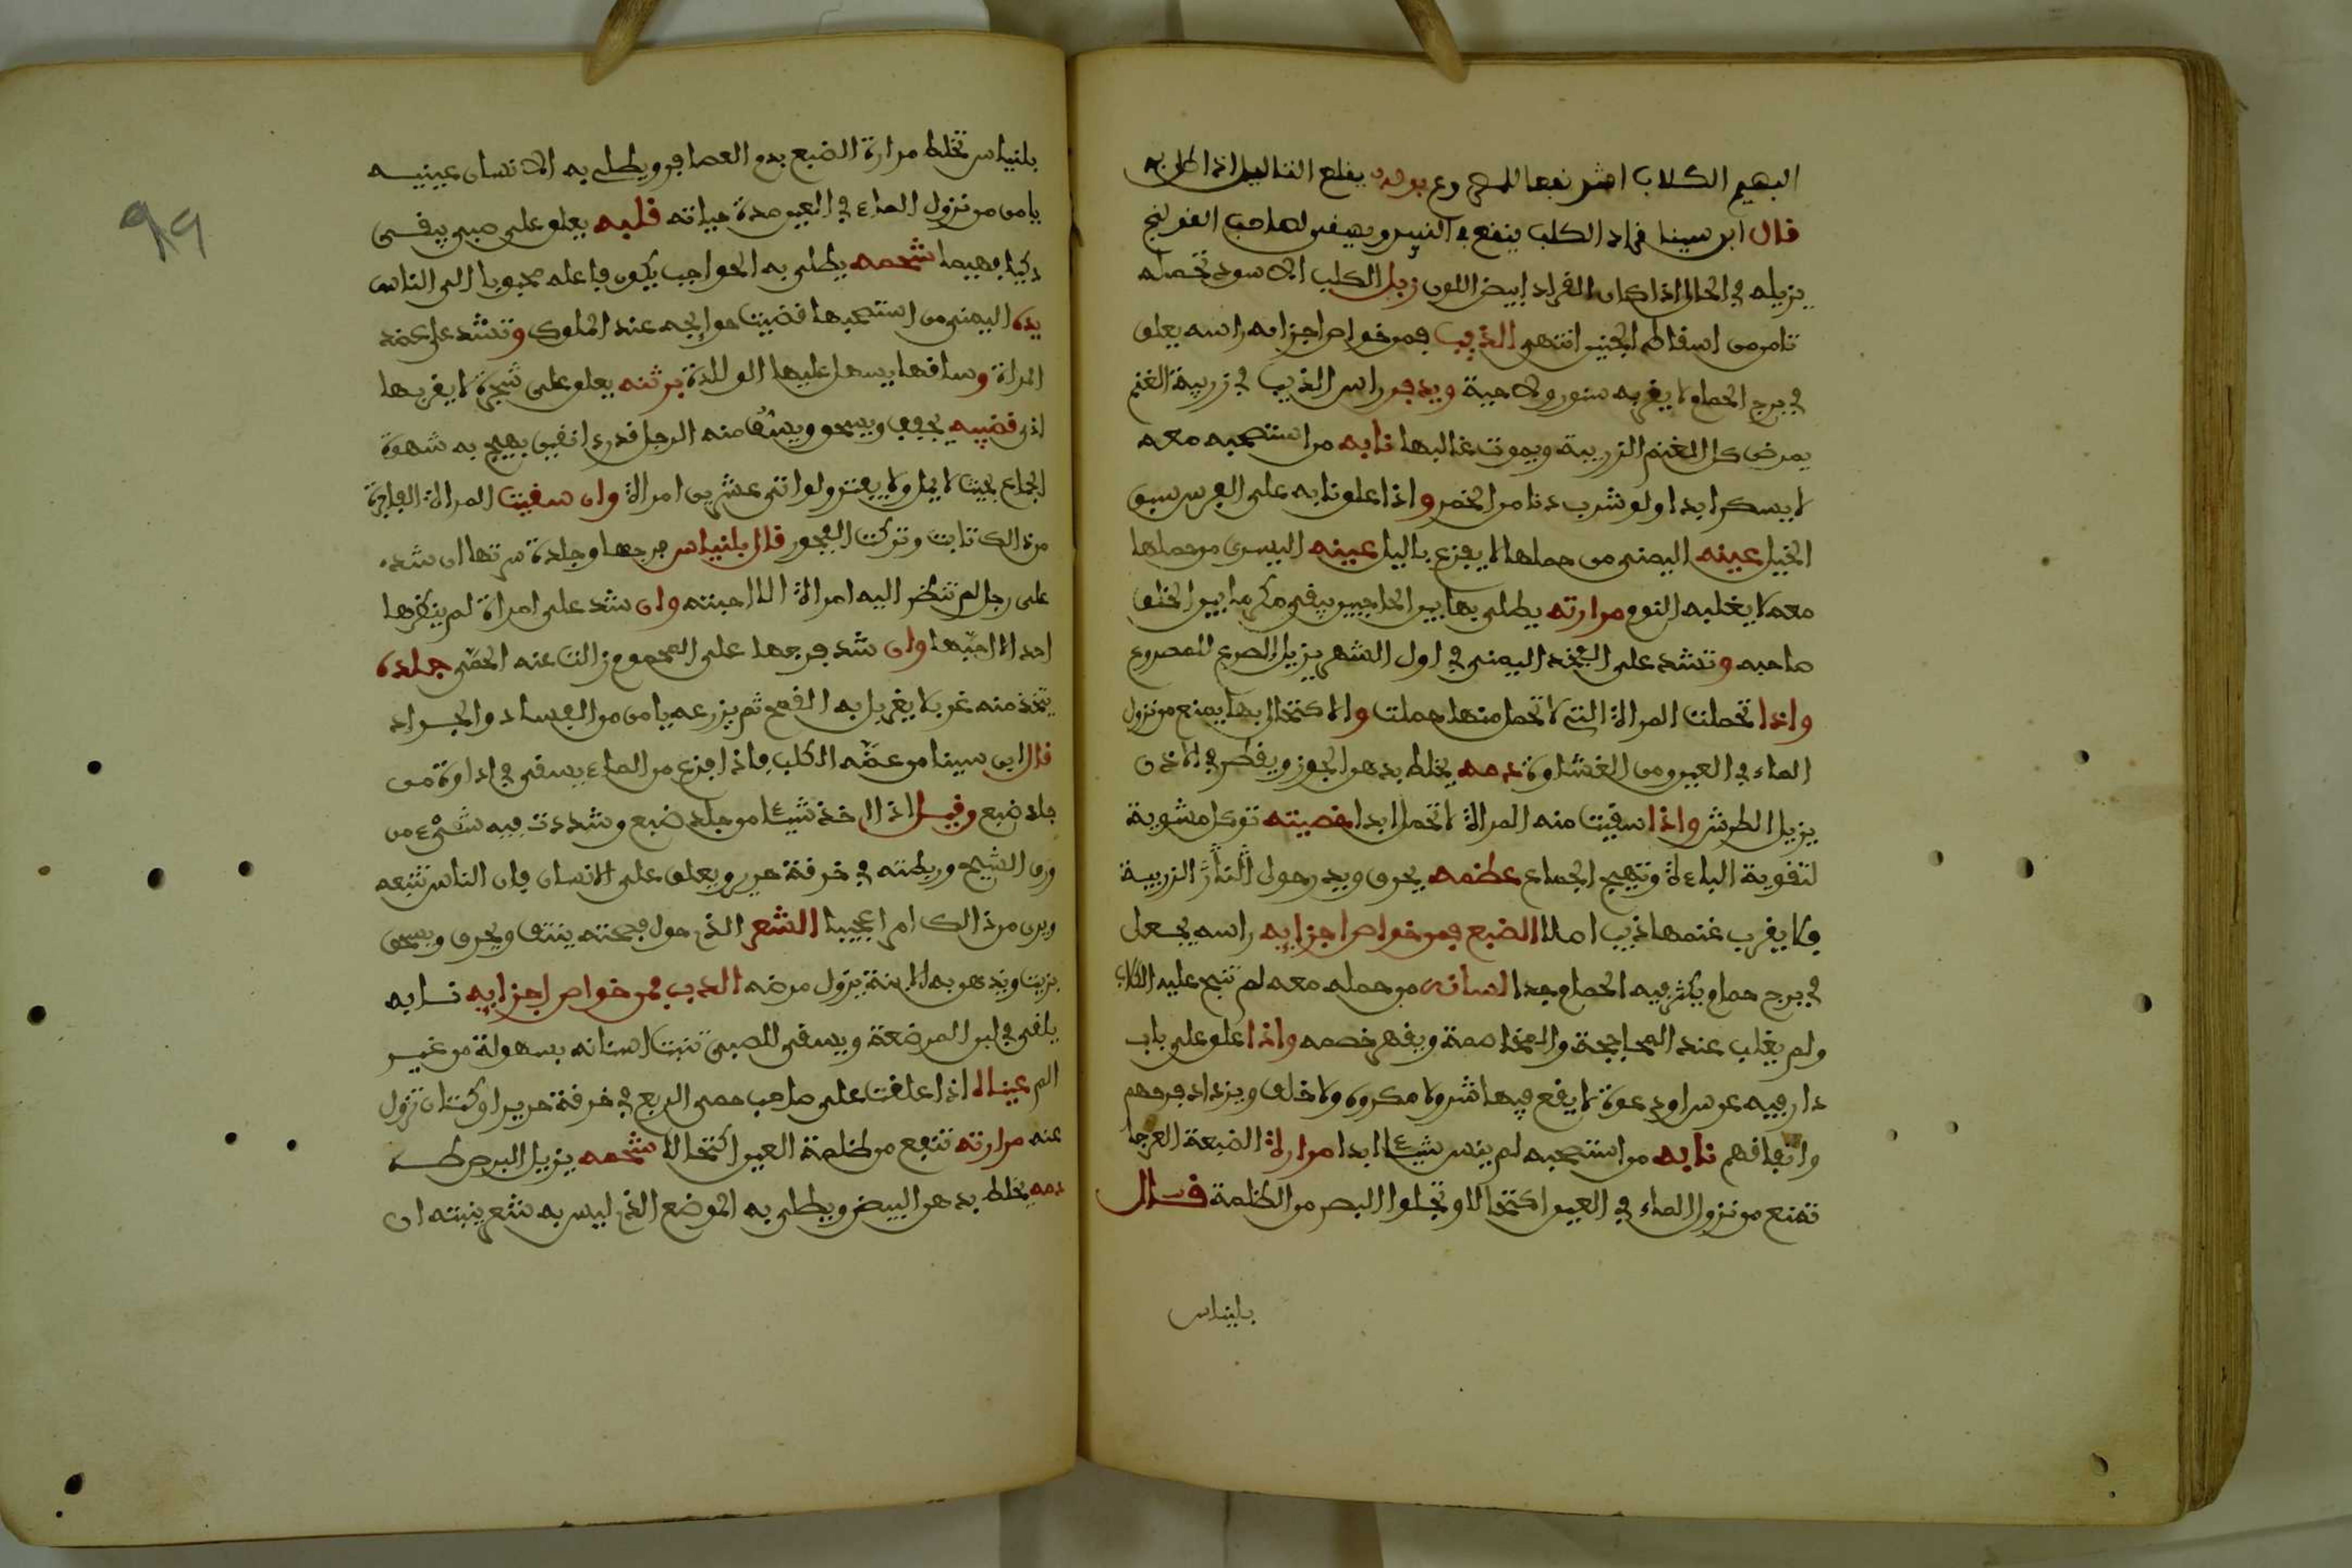 البهيم الكلاب اكثر نفعا للمصروع بوله يفلع الثاليل اذا طلي به
قال ابن سينا قراد الكلب ينفع في النبيذ ويسقى لصاحب القولنج
يزيله في الحال اذا كان القراد ابيض اللون زبل الكلب الاسود تحمله
تامن من اسقاط الجنين انتهى الذيب فمن خواص اجزايه راسه يعلق
في برج الحمام لا يقربه سنور ولا حية ويدفن راس الذيب في زريبة الغنم
يمرض كل الغنم الزريبة ويموت غالبها نابه من استصحبه معه
لا يسكر ابدا ولو شرب دنا من الخمر واذا علق نابه على الفرس سبق
الخيل عينه اليمنى من حملها لا يفزع باليل عينه اليسرى من حملها
معه لا يغلبه النوم مرارته يطلى بها بين الحاجبين يبقى مكرما بين الخلق
صاحبه وتشد على الفخذ اليمنى في اول الشهر يزيل الصرع للمصروع
واذا تحملت المراة التي لا تحمل منها حملت والاكتحال بها يمنع من نزول
الماء في العين ومن الغشاوة دمه يخلط بدهن الجوز ويقطر في الاذن
يزيل الطرش واذا سقيت منه المراة لا تحمل ابدا خصيته توكل مشوية
لتقوية الباءة وتهيج الجماع عظمه يحرق ويدر حول النار الزريبة
فلا يقرب غنمها ذيب اصلا الضبع فمن خواص اجزايه راسه يجعل
في برج حمام يكثر فيه الحمام جدا لسانه من حمله معه لم تنبح عليه الكلاب
ولم يغلب عند المحاججة والمخاصمة ويقهر خصمه واذا علق على باب
دار فيه عرس او دعوة لا يقع فيها شر ولا مكروه ولا خلف ويزداد فرحهم
واتفاقهم نابه من استصحبه لم ينس شيئا ابدا مرارة الضبعة العرجا
تمنع من نزول الماء في العين اكتحالا وتجلوا البصر من الظلمة قال
بلنياس
99
بلنياس تخلط مرارة الضبع بدم العصافير ويطلى به الانسان عينيه
يامن من نزول الماء في العين مدة حياته قلبه يعلق على صبي يبقى
ذكيا فهيما شحمه يطلى به الحواجب يكون فاعله محبوبا الى الناس
يده اليمنى من استصحبها قضيت حوايجه عند الملوك وتشد على عضد
المراة وساقها يسهل عليها الولادة برثنه يعلق على شجرة لا يقربها
اذى قضيبه يجفف ويسحق ويسقى منه الرجل قدر دانقين يهيج به شهوة
الجماع بحيث لا يمل ولا يفتر ولو اتى عشرين امراة وان سقيت المراة الفاجرة
من ذالك تابت وتركت الفجور قال بلنياس فرجها وجلدة سرتها ان شده
على رجل لم تنظر اليه امراة الا احبته وان شد على امراة لم ينظرها
احد الا احبها وان شد فرجها على المحموم زالت عنه الحمى جلده
يتخذ منه غربلا يغربل به القمح ثم يزرعه يامن من الفساد والجراد
قال ابن سينا من عضه الكلب فاذا فزع من الماء يسقى في اداوة من
جلد ضبع وقيل اذا اخذ شيئا من جلد ضبع وشددت فيه شيء من
ورق الشيح وربطته في خرقة حرير ويعلق على الانسان فان الناس تتبعه
ويرى من ذالك امرا عجيبا الشعر الذي حول فقحته ينتف ويحرق ويسحق
بزيت ويدهن به الابنة يزول مرضه الدب فمن خواص اجزايه نابه
يلقى في لبن المرضعة ويسقى للصبي تنبت اسنانه بسهولة من غير
الم عيناه اذا علقت على صاحب حمى الربع في خرقة حرير او كتان تزول
عنه مرارته تنفع من ظلمة العين اكتحالا شحمه يزيل البرص طلاء
دمه يخلط بدهن البيض ويطلى به الموضع الذي ليس به شعر ينبته ان